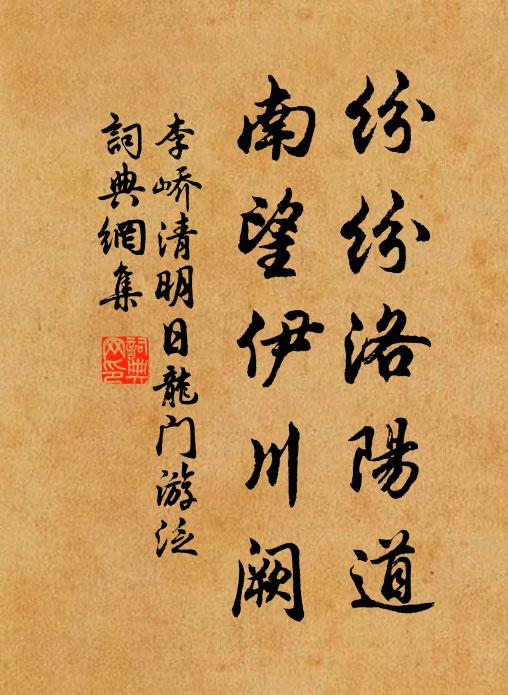 紛紛洛陽道
南望伊川闕
李嶠清明日龍门游泛
詞典網集
詞典
网印